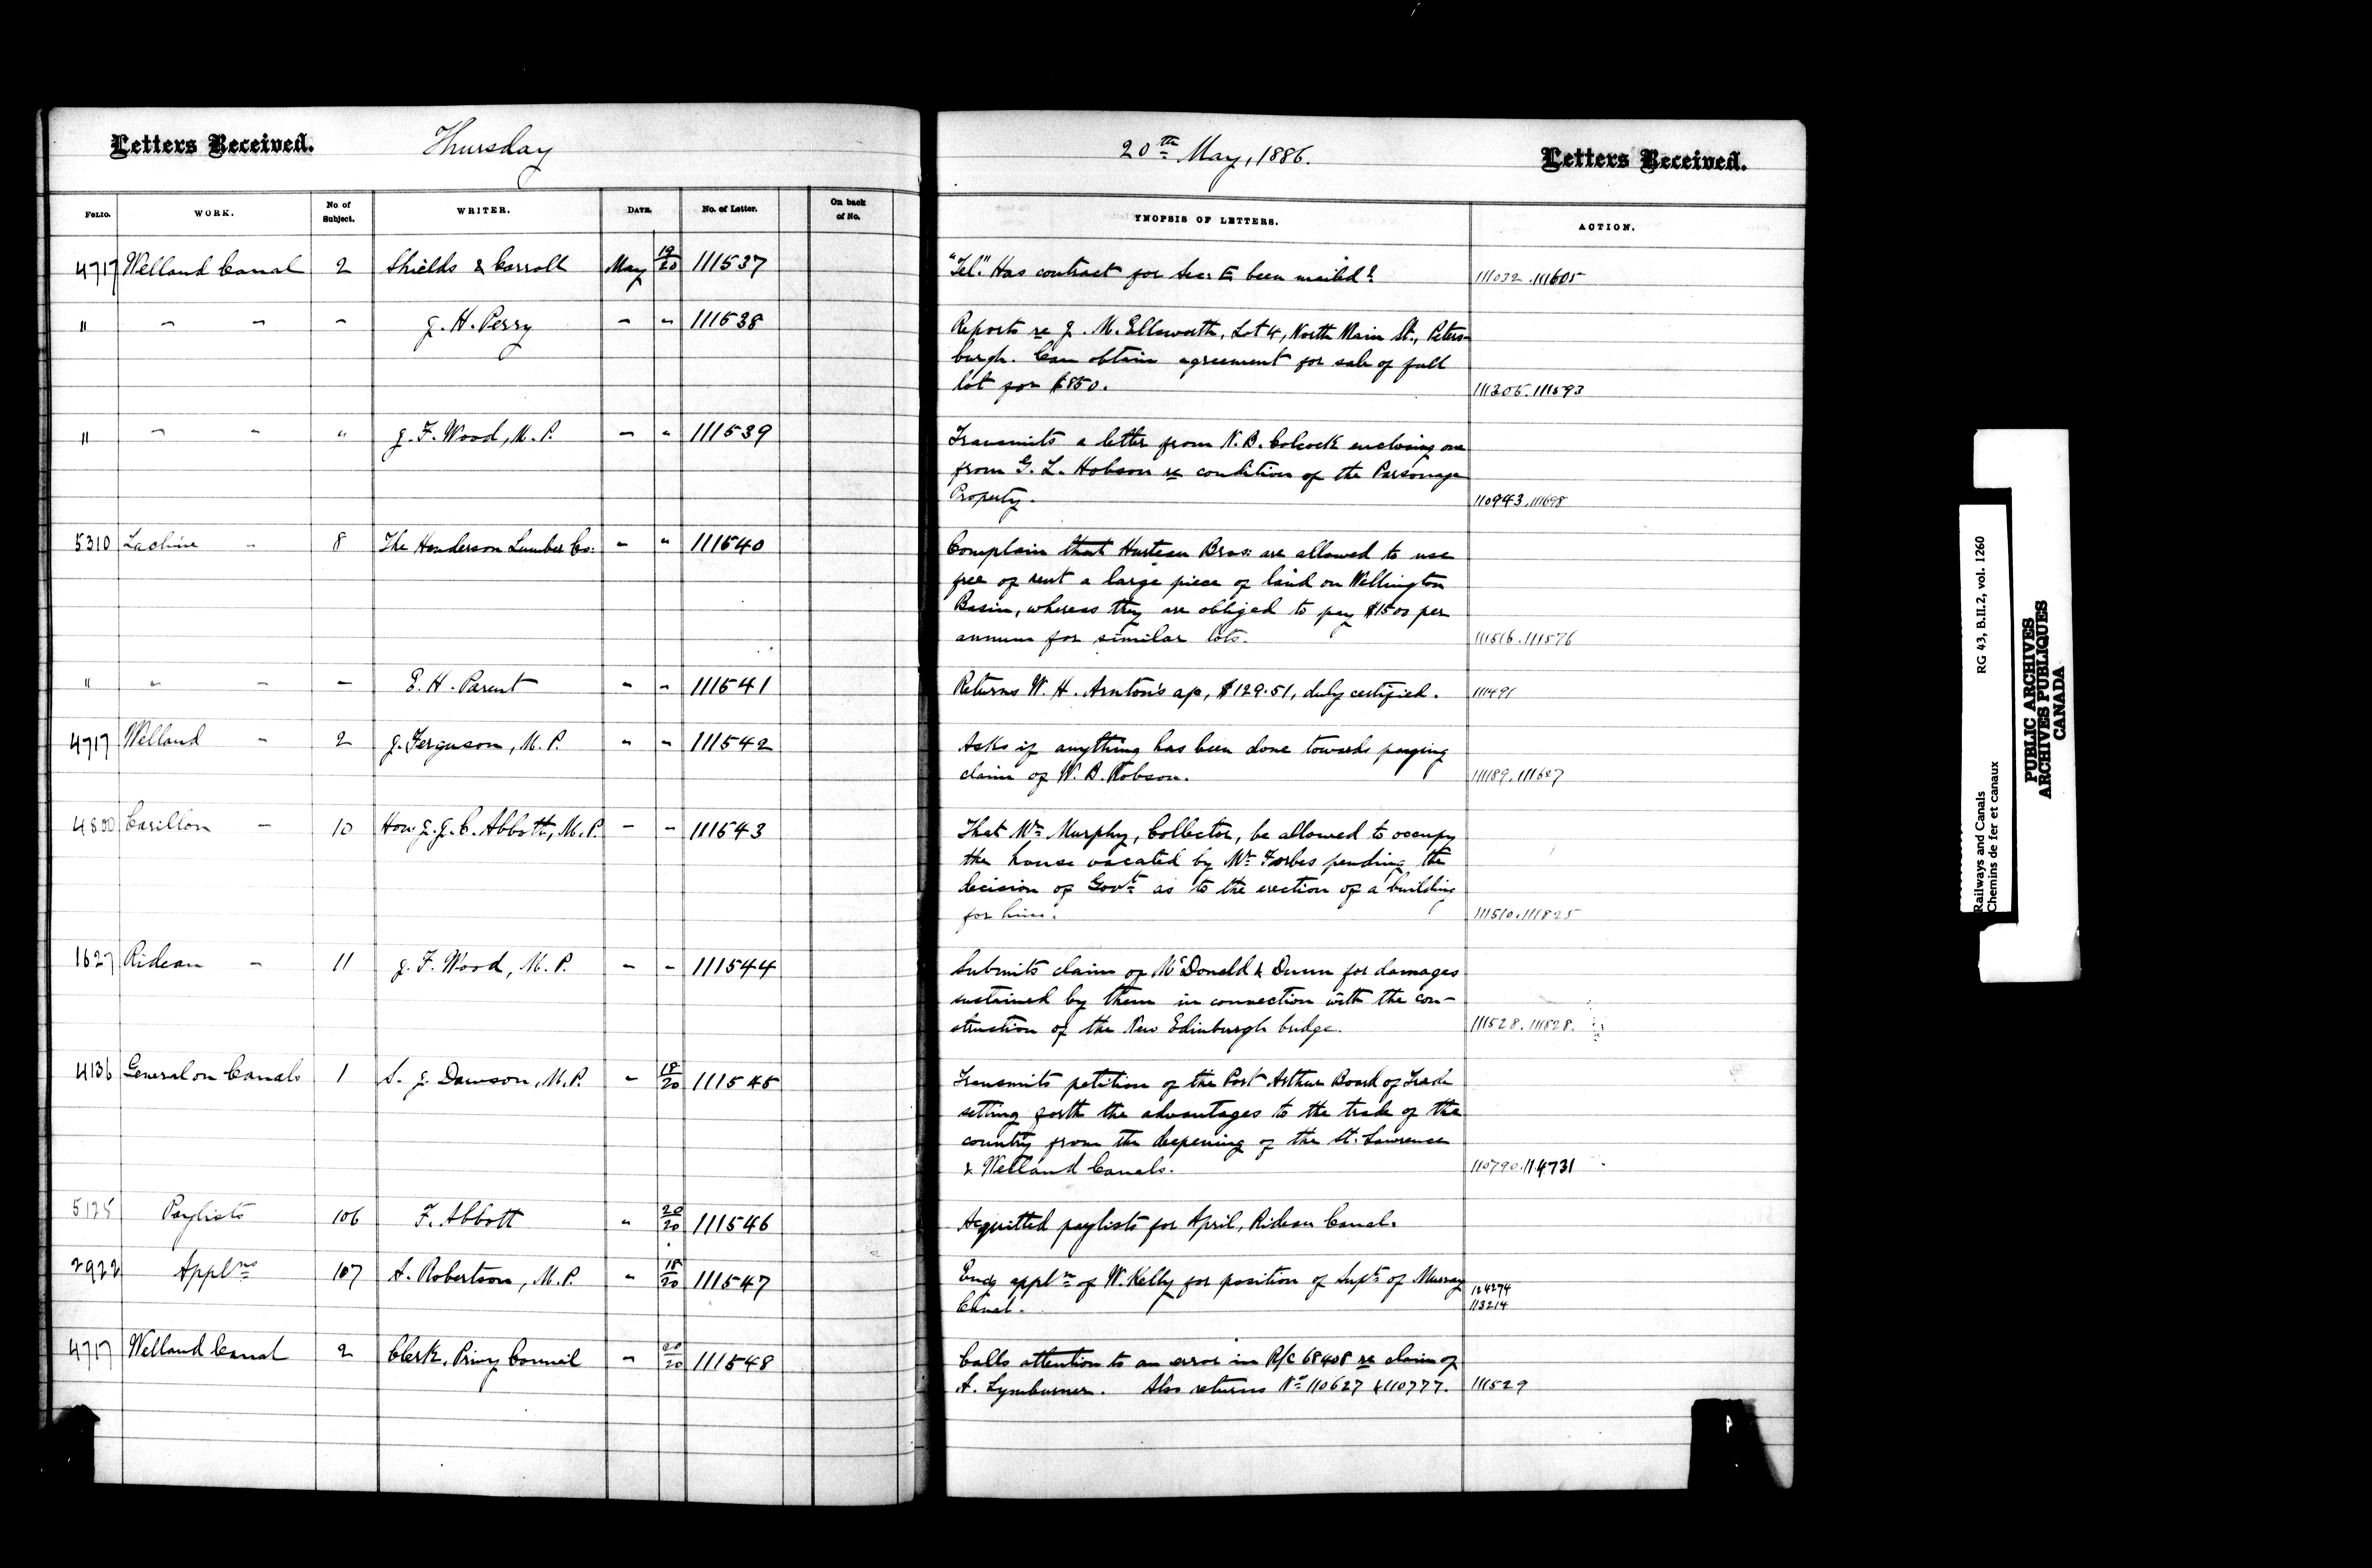 Letters Received. Thursday
20th May, 1886. Letters Received.
FOLIO. WORK. No of Subject. WRITER. DATE. No. of Letter. On back of No. YNOPSIS OF LETTERS. ACTION.
4717 Welland Canal 2 Shields & Carroll May 19/20 111537 "Tel." Has contract for Sec: E been mailed? 111032.111605
" - - - J. H. Perry - - 111538 Reports re J. M. Ellsworth, Lot 4, North Main St., Peters-
burgh. Can obtain agreement for sale of full
lot for $850. 111305.111593
" - - " J. F. Wood, M.P. - " 111539 Transmits a letter from N. B. Colcock enclosing one
from G. L. Hobson re condition of the Parsonage
Property. 110943.111698
5310 Lachine - 8 The Henderson Lumber Co: - " 111540 Complain that Hurteau Bros: are allowed to use
free of rent a large piece of land on Wellington
Basin, whereas they are obliged to pay $1500 per
annum for similar lots. 111516.111576
" " - - E. H. Parent - - 111541 Returns W. H. Arnton's a/c, $129.51, duly certified. 111491
4717 Welland - 2 J. Ferguson, M.P. - - 111542 Asks if anything has been done towards paying
claim of W. B. Robson. 111189.111607
4800 Carillon - 10 Hon. J. J. C. Abbott, M.P. - - 111543 That Mr Murphy, Collector, be allowed to occupy
the house vacated by Mr Forbes pending the
decision of Govt as to the erection of a building
for him. 111510.111825
1627 Rideau - 11 J. F. Wood, M.P. - - 111544 Submits claim of McDonald & Dunn for damages
sustained by them in connection with the con-
struction of the New Edinburgh bridge. 111528.111828.
4136 General on Canals 1 S. J. Dawson, M.P. - 18/20 111545 Transmits petition of the Port Arthur Board of Trade
setting forth the advantages to the trade of the
country from the deepening of the St. Lawrence
& Welland Canals. 110790.114731
5125 Paylists 106 F. Abbott " 20/20 111546 Acquitted paylists for April, Rideau Canal.
2922 Applns 107 A. Robertson, M.P. - 18/20 111547 Encg appln of W. Kelly for position of Supt of Murray
Canal. 124274
113214
4717 Welland Canal 2 Clerk, Privy Council - 20/20 111548 Calls attention to an error in R/C 68408 re claim of
A. Lymburner. Also returns No 110627 & 110777. 111529
RG 43, B.II.2, vol. 1260
Railways and Canals
Chemins de fer et canaux
PUBLIC ARCHIVES
ARCHIVES PUBLIQUES
CANADA